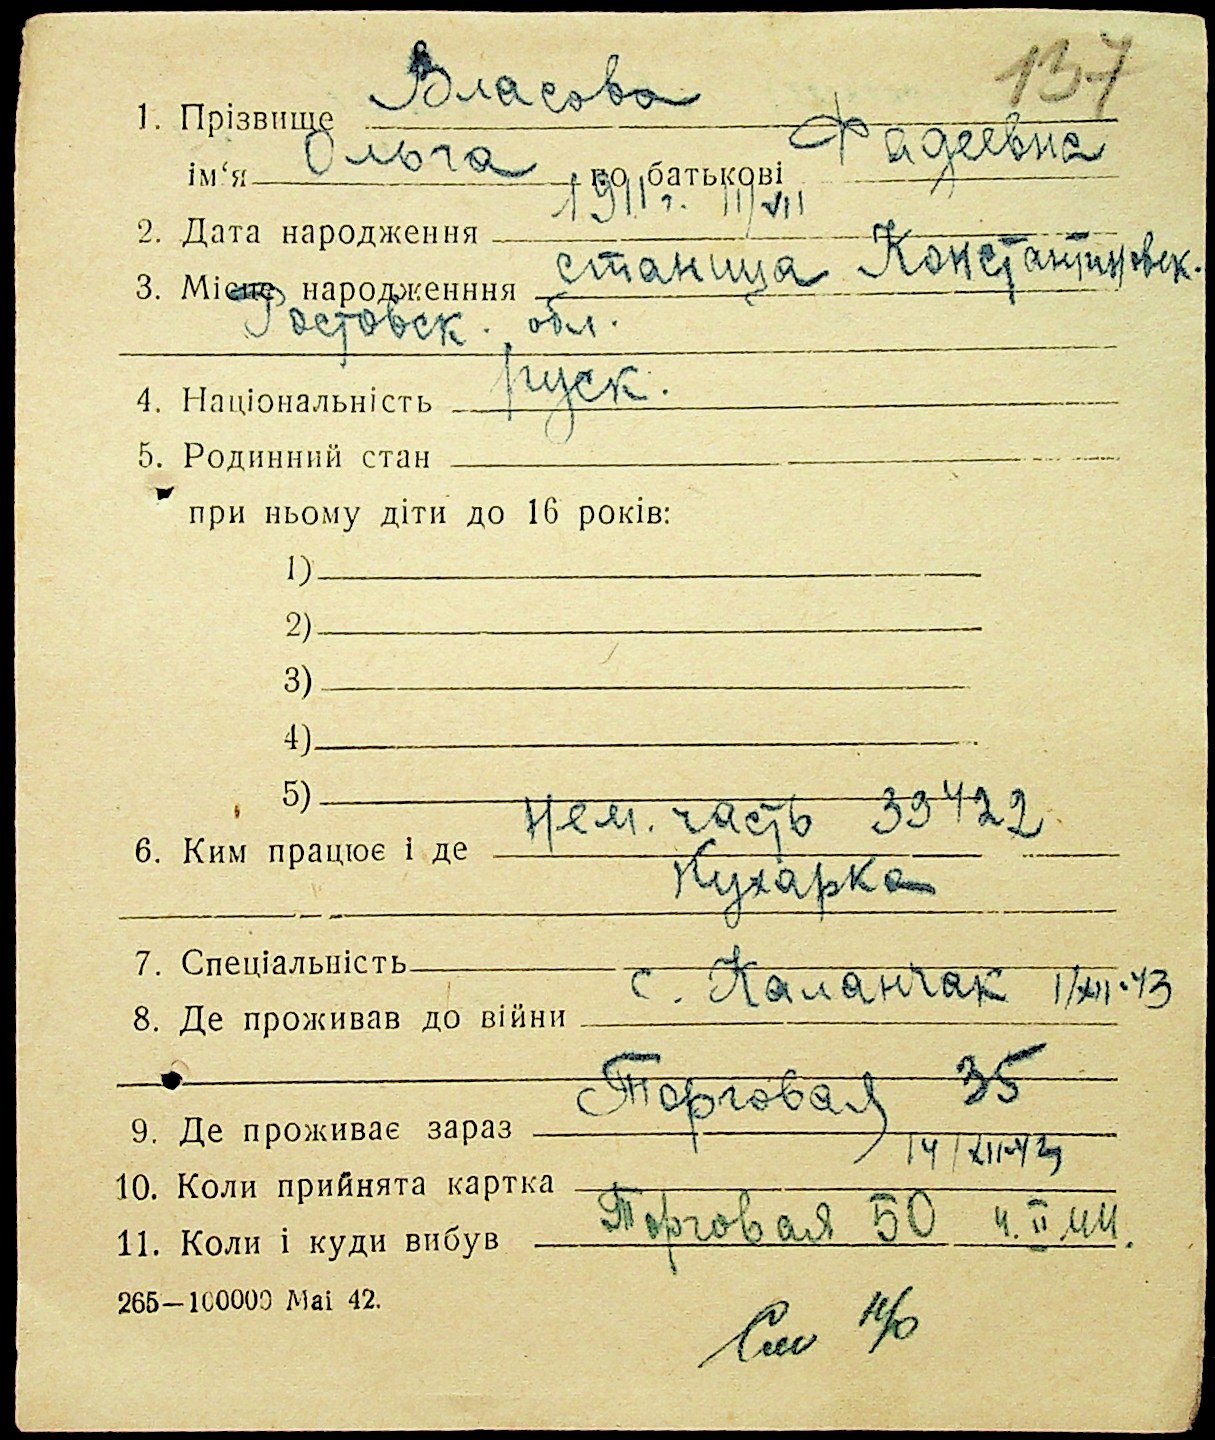 137
Власова
1. Прізвище
Ольга Фадеевна
ім‘я по батькові
1911 г. 11/VII
2. Дата народження
станица Константиновск.
3. Місце народженння
Ростовск. обл.
руск.
4. Національність
5. Родинний стан
при ньому діти до 16 років:
1)
2)
3)
4)
5)
Нем. часть 39422
6. Ким працює і де
Кухарка
7. Спеціальність
с. Каланчак 1/XII-43
8. Де проживав до війни
Торговая 35
9. Де проживає зараз
14/XII-43
10. Коли прийнята картка
Торговая 50 4.II 44.
11. Коли і куди вибув
265—100000 Mai 42.
См н/о